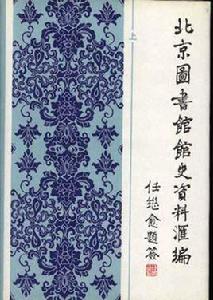 北京圖書館館史資料滙編
上
任继愈題签